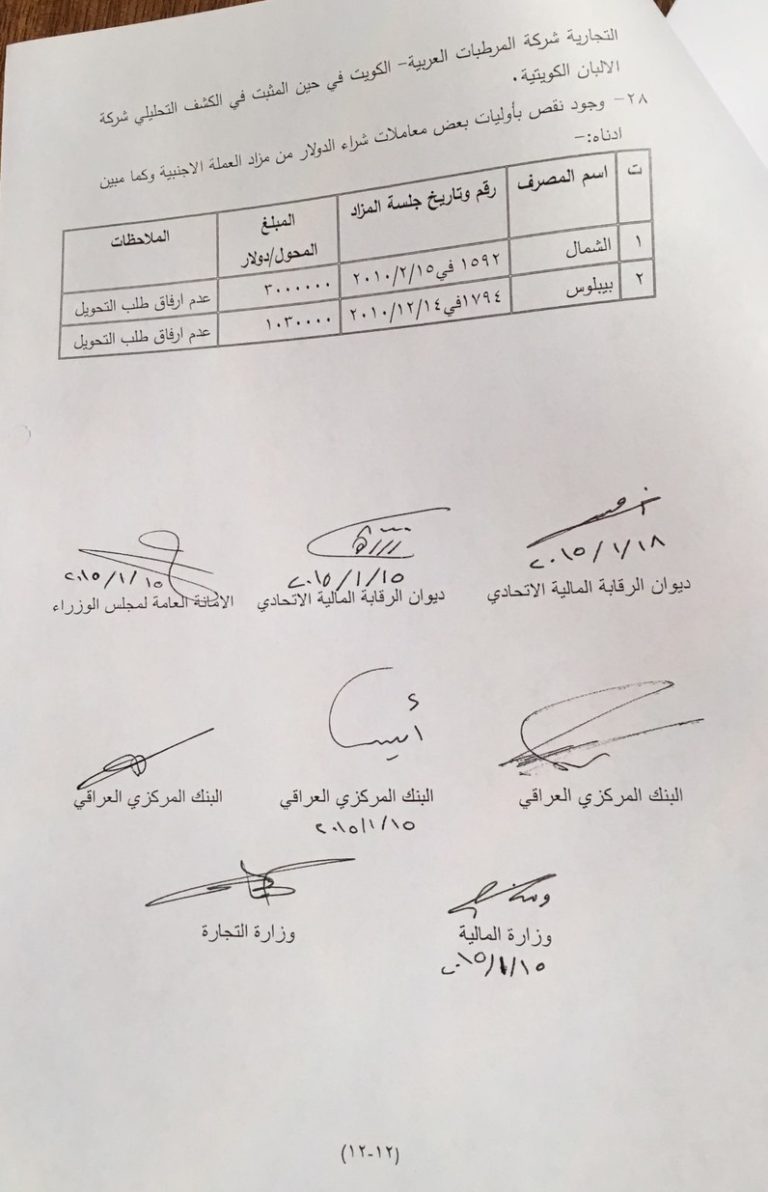 التجارية شركة المرطبات العربية- الكويت في حين المثبت في الكشف التحليلي شركة
الالبان الكويتية.
٢٨- وجود نقص بأوليات بعض معاملات شراء الدولار من مزاد العملة الاجنبية وكما مبين
ادناه:-
ت اسم المصرف رقم وتاريخ جلسة المزاد المبلغ المحول/دولار الملاحظات
١ الشمال ١٥٩٢ في ٢٠١٠/٢/١٥ ٣٠٠٠٠٠٠ عدم ارفاق طلب التحويل
٢ بيبلوس ١٧٩٤في ٢٠١٠/١٢/١٤ ١٠٣٠٠٠٠ عدم ارفاق طلب التحويل
٢٠١٥/١/١٨ ٢٠١٥/١/١٥ ٢٠١٥/١/١٥
ديوان الرقابة المالية الاتحادي ديوان الرقابة المالية الاتحادي الامانة العامة لمجلس الوزراء
البنك المركزي العراقي البنك المركزي العراقي البنك المركزي العراقي
٢٠١٥/١/١٥
وزارة المالية وزارة التجارة
٢٠١٥/١/١٥
(١٢-١٢)